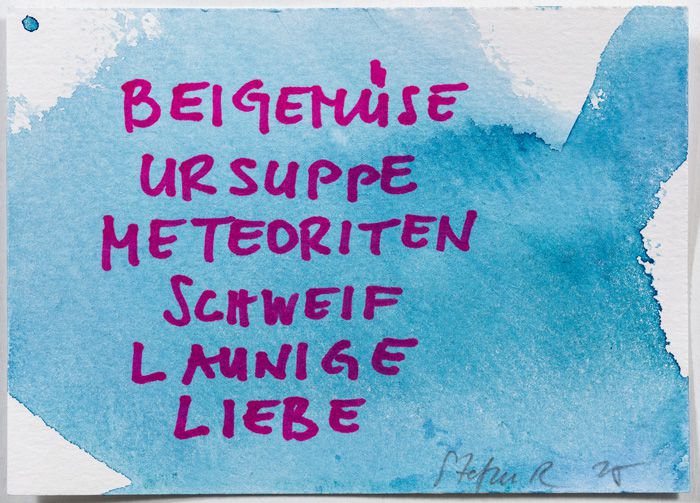 BEIGEMÜSE
URSUPPE
METEORITEN
SCHWEIF
LAUNIGE
LIEBE